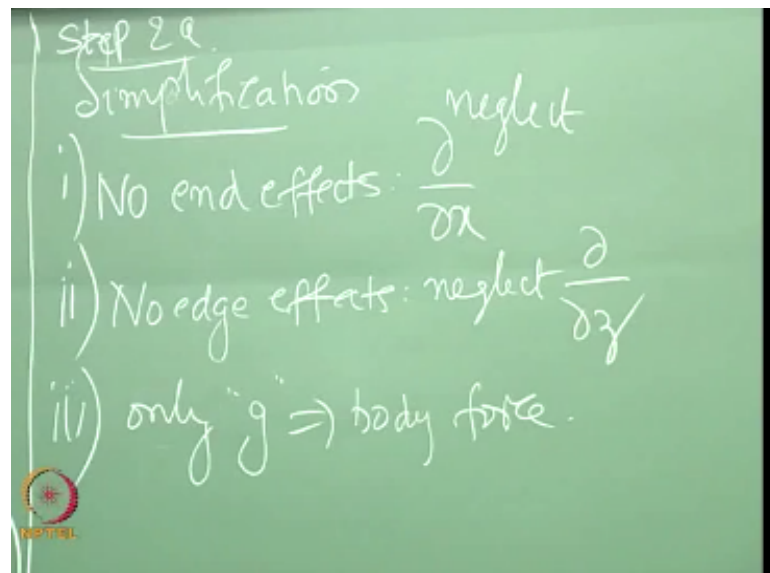 Step 2a.
Simplifications
i) No end effects: ∂/∂x neglect
ii) No edge effects: neglect ∂/∂z
iii) only "g" ⇒ body force.
NPTEL